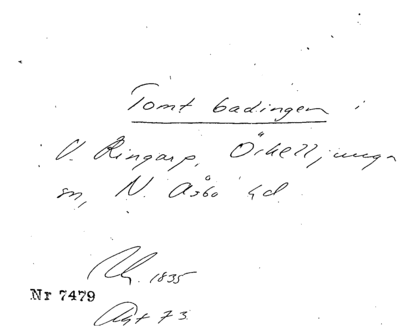 Tomt badingen i
V. Ringarp, Örkelljunga
sn, N. Åsbo hd.
1835
Nr 7479
73